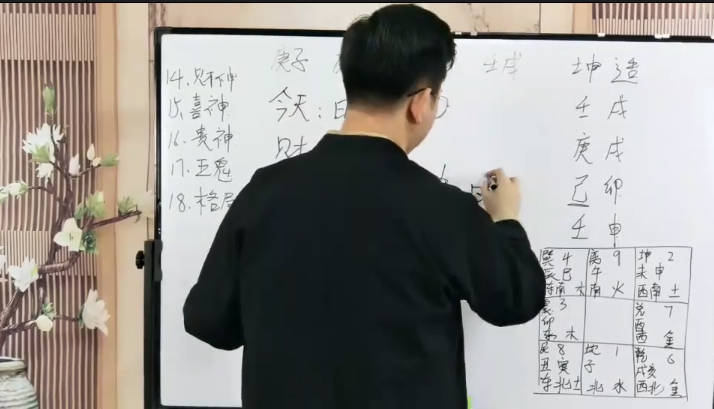 庚子
壬戌
坤造
14.财神
15.喜神
16.贵神
17.五鬼
18.格局
今天:日
财
壬戌
庚戌
己卯
壬申
巽 4
辰巳
东南 木
离 9
午
南 火
坤 2
未申
西南 土
震 3
卯
东 木
兑 7
酉
西 金
艮 8
丑寅
东北土
坎 1
子
北 水
乾 6
戌亥
西北 金